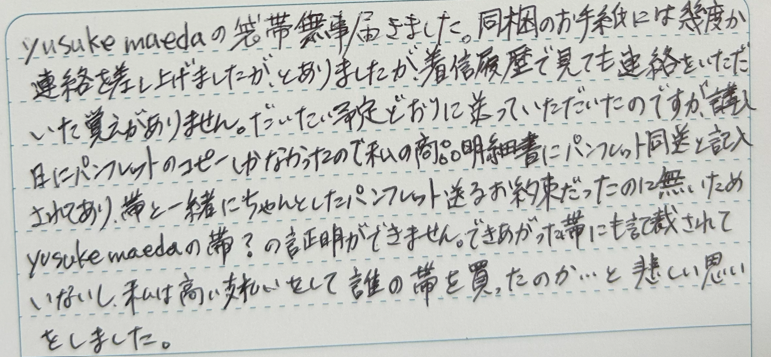 yusuke maedaの袋帯無事届きました。同梱のお手紙には幾度か
連絡を差し上げましたが、とありましたが、着信履歴で見ても連絡をいただ
いた覚えがありません。だいたい予定どおりに送っていただいたのですが、購入
日にパンフレットのコピーしかなかったので私の商品明細書にパンフレット同送と記入
されてあり、帯と一緒にちゃんとしたパンフレット送るお約束だったのに無いため
yusuke maedaの帯?の証明ができません。できあがった帯にも記載されて
いないし、私は高い支払いをして誰の帯を買ったのか…と悲しい思い
をしました。